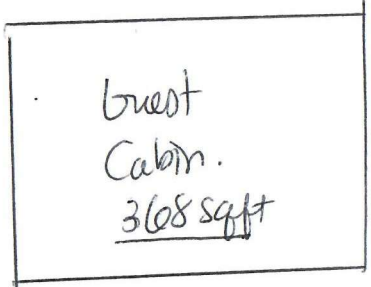 Guest
Cabin.
368 sqft